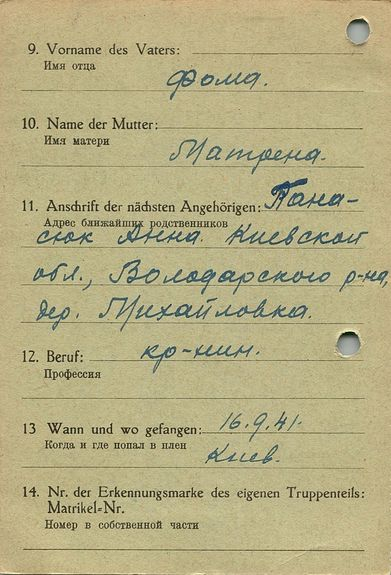 9. Vorname des Vaters:
Имя отца
Фома.
10. Name der Mutter:
Имя матери
Матрена.
11. Anschrift der nächsten Angehörigen: Пана-
Адрес ближайших родственников
сюк Анна. Киевской
обл., Володарского р-на,
дер. Михайловка.
12. Beruf: кр-нин.
Профессия
13 Wann und wo gefangen: 16.9.41.
Когда и где попал в плен
Киев.
14. Nr. der Erkennungsmarke des eigenen Truppenteils:
Matrikel-Nr.
Номер в собственной части